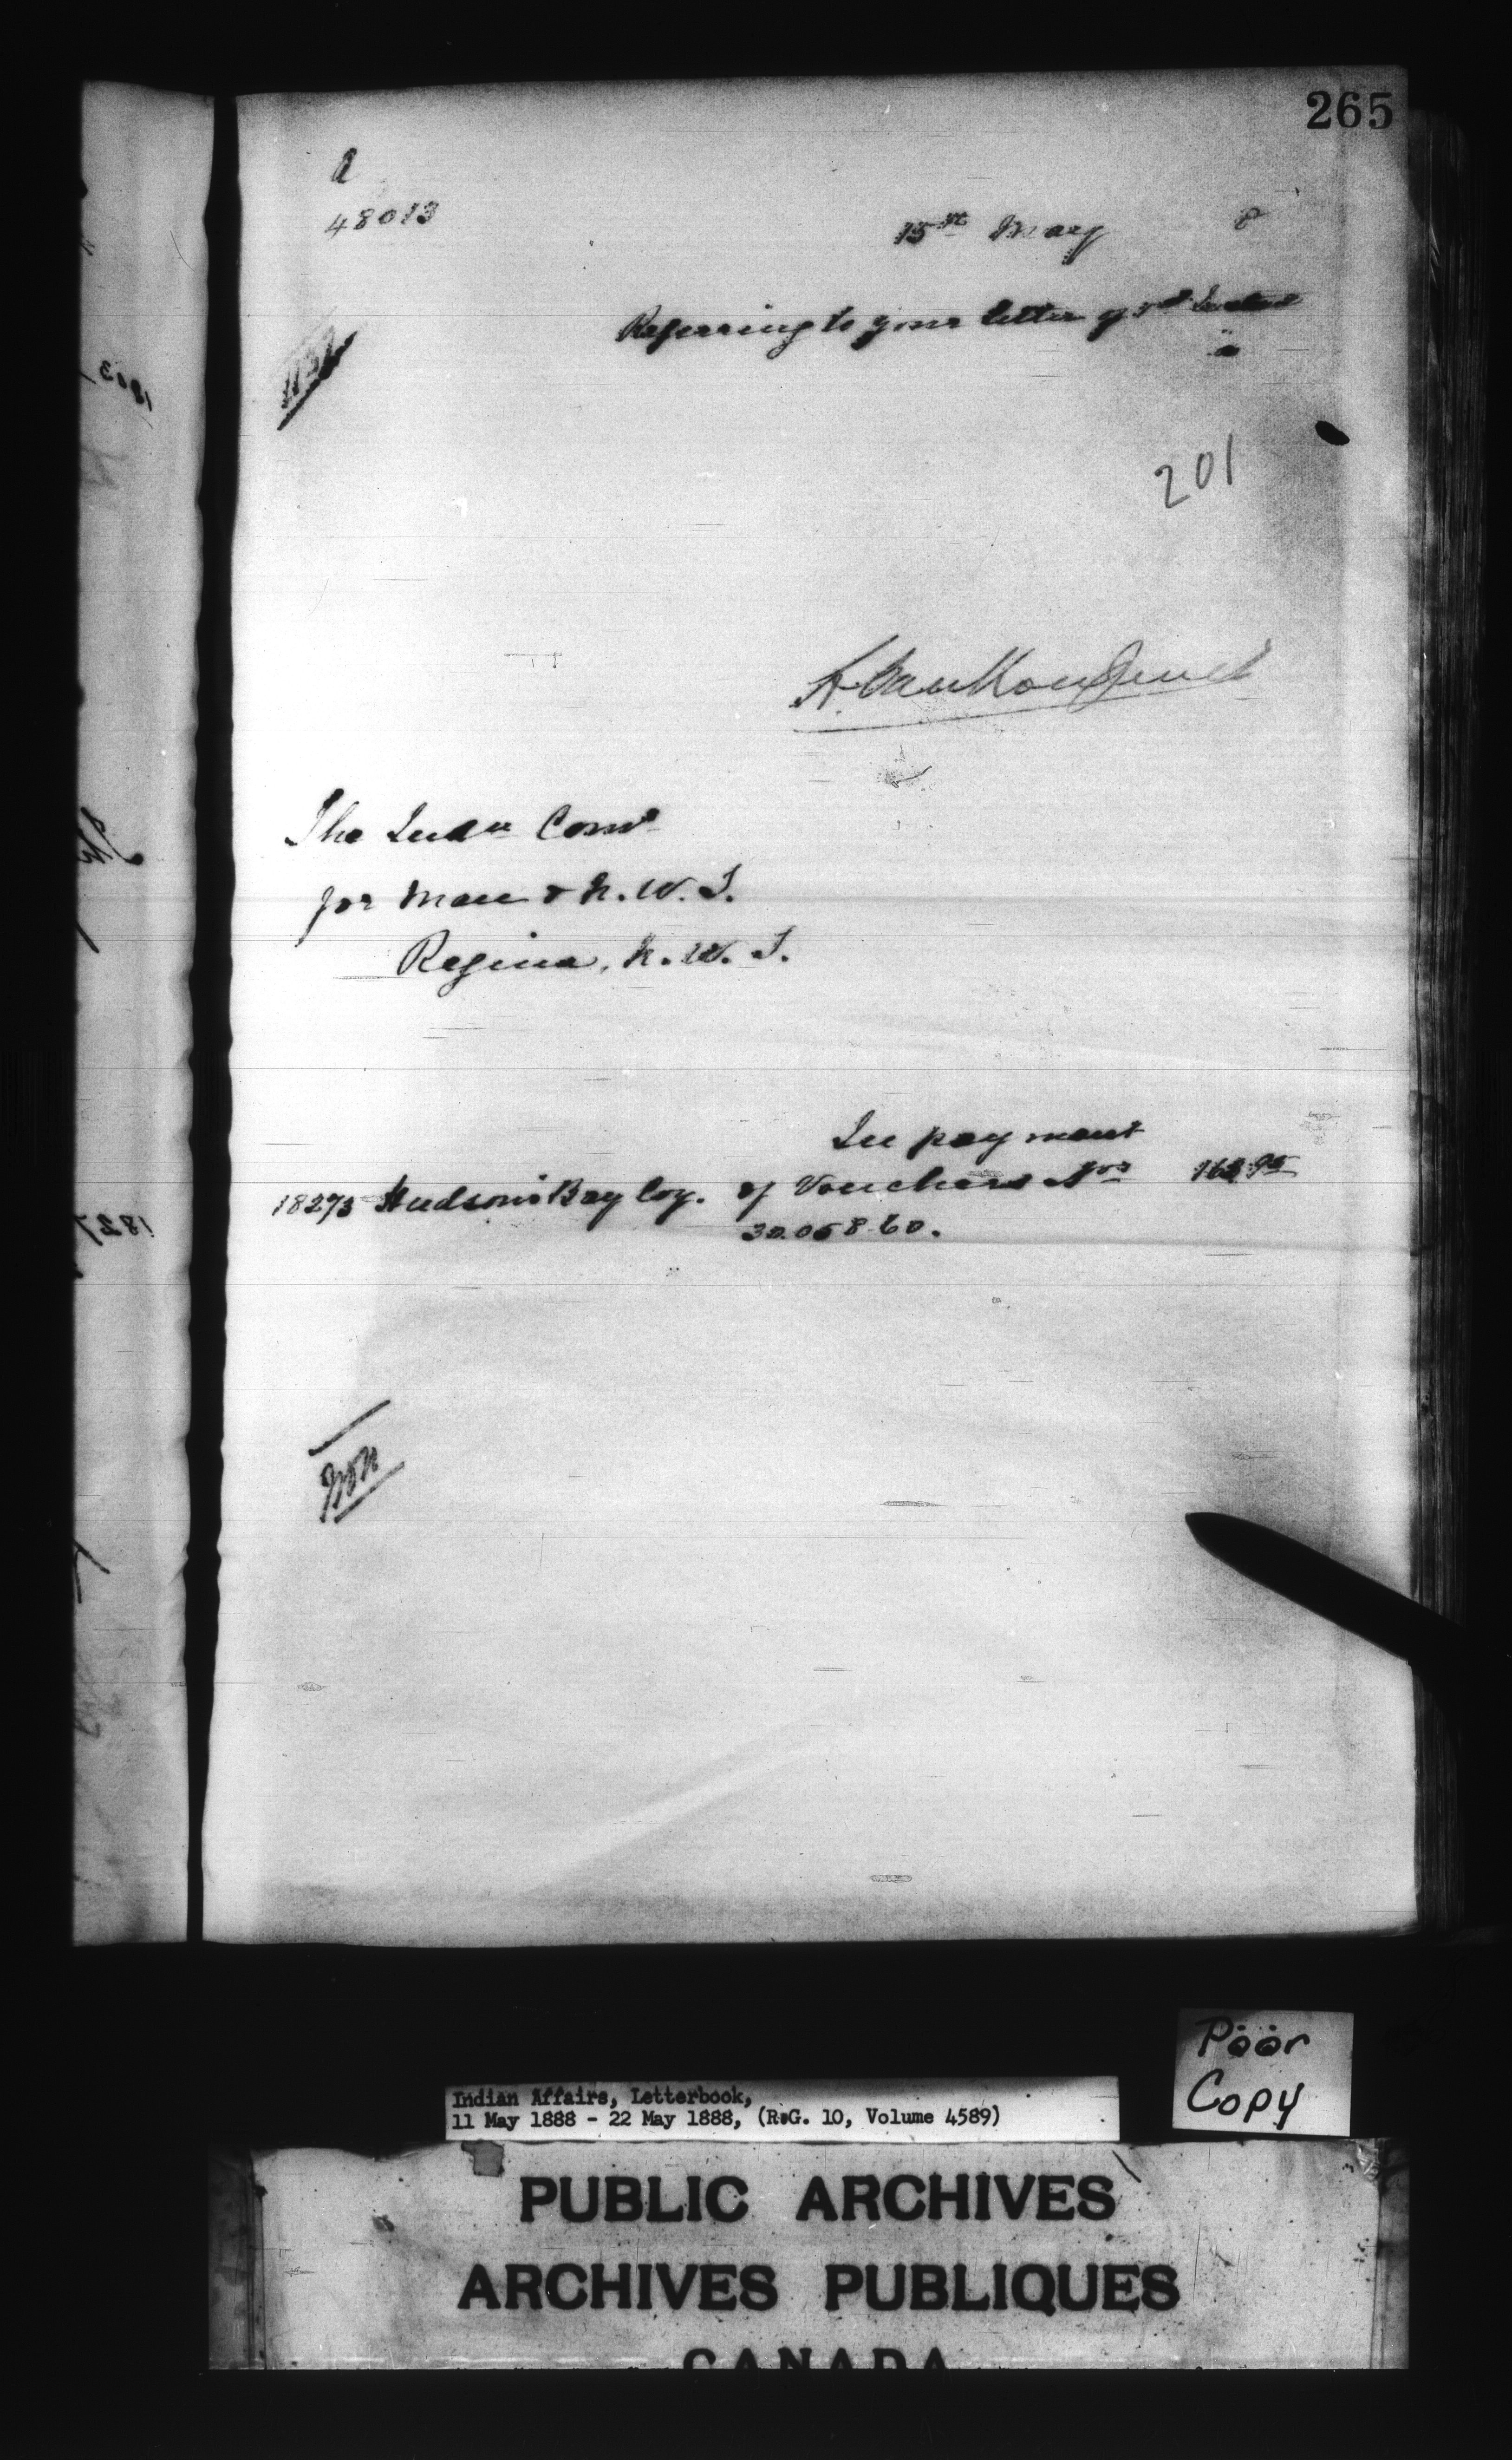 265
48013
15th May 8
Referring to your letter of
201
L. VanKoughnet
The Indn Comr
for Man & N.W.T.
Regina, N.W.T.
In payment
18273 Hudson's Bay Coy. of Vouchers Nos
30.058-60.
Poor
Copy
Indian Affairs, Letterbook,
11 May 1888 - 22 May 1888, (R.G. 10, Volume 4589)
PUBLIC ARCHIVES
ARCHIVES PUBLIQUES
CANADA